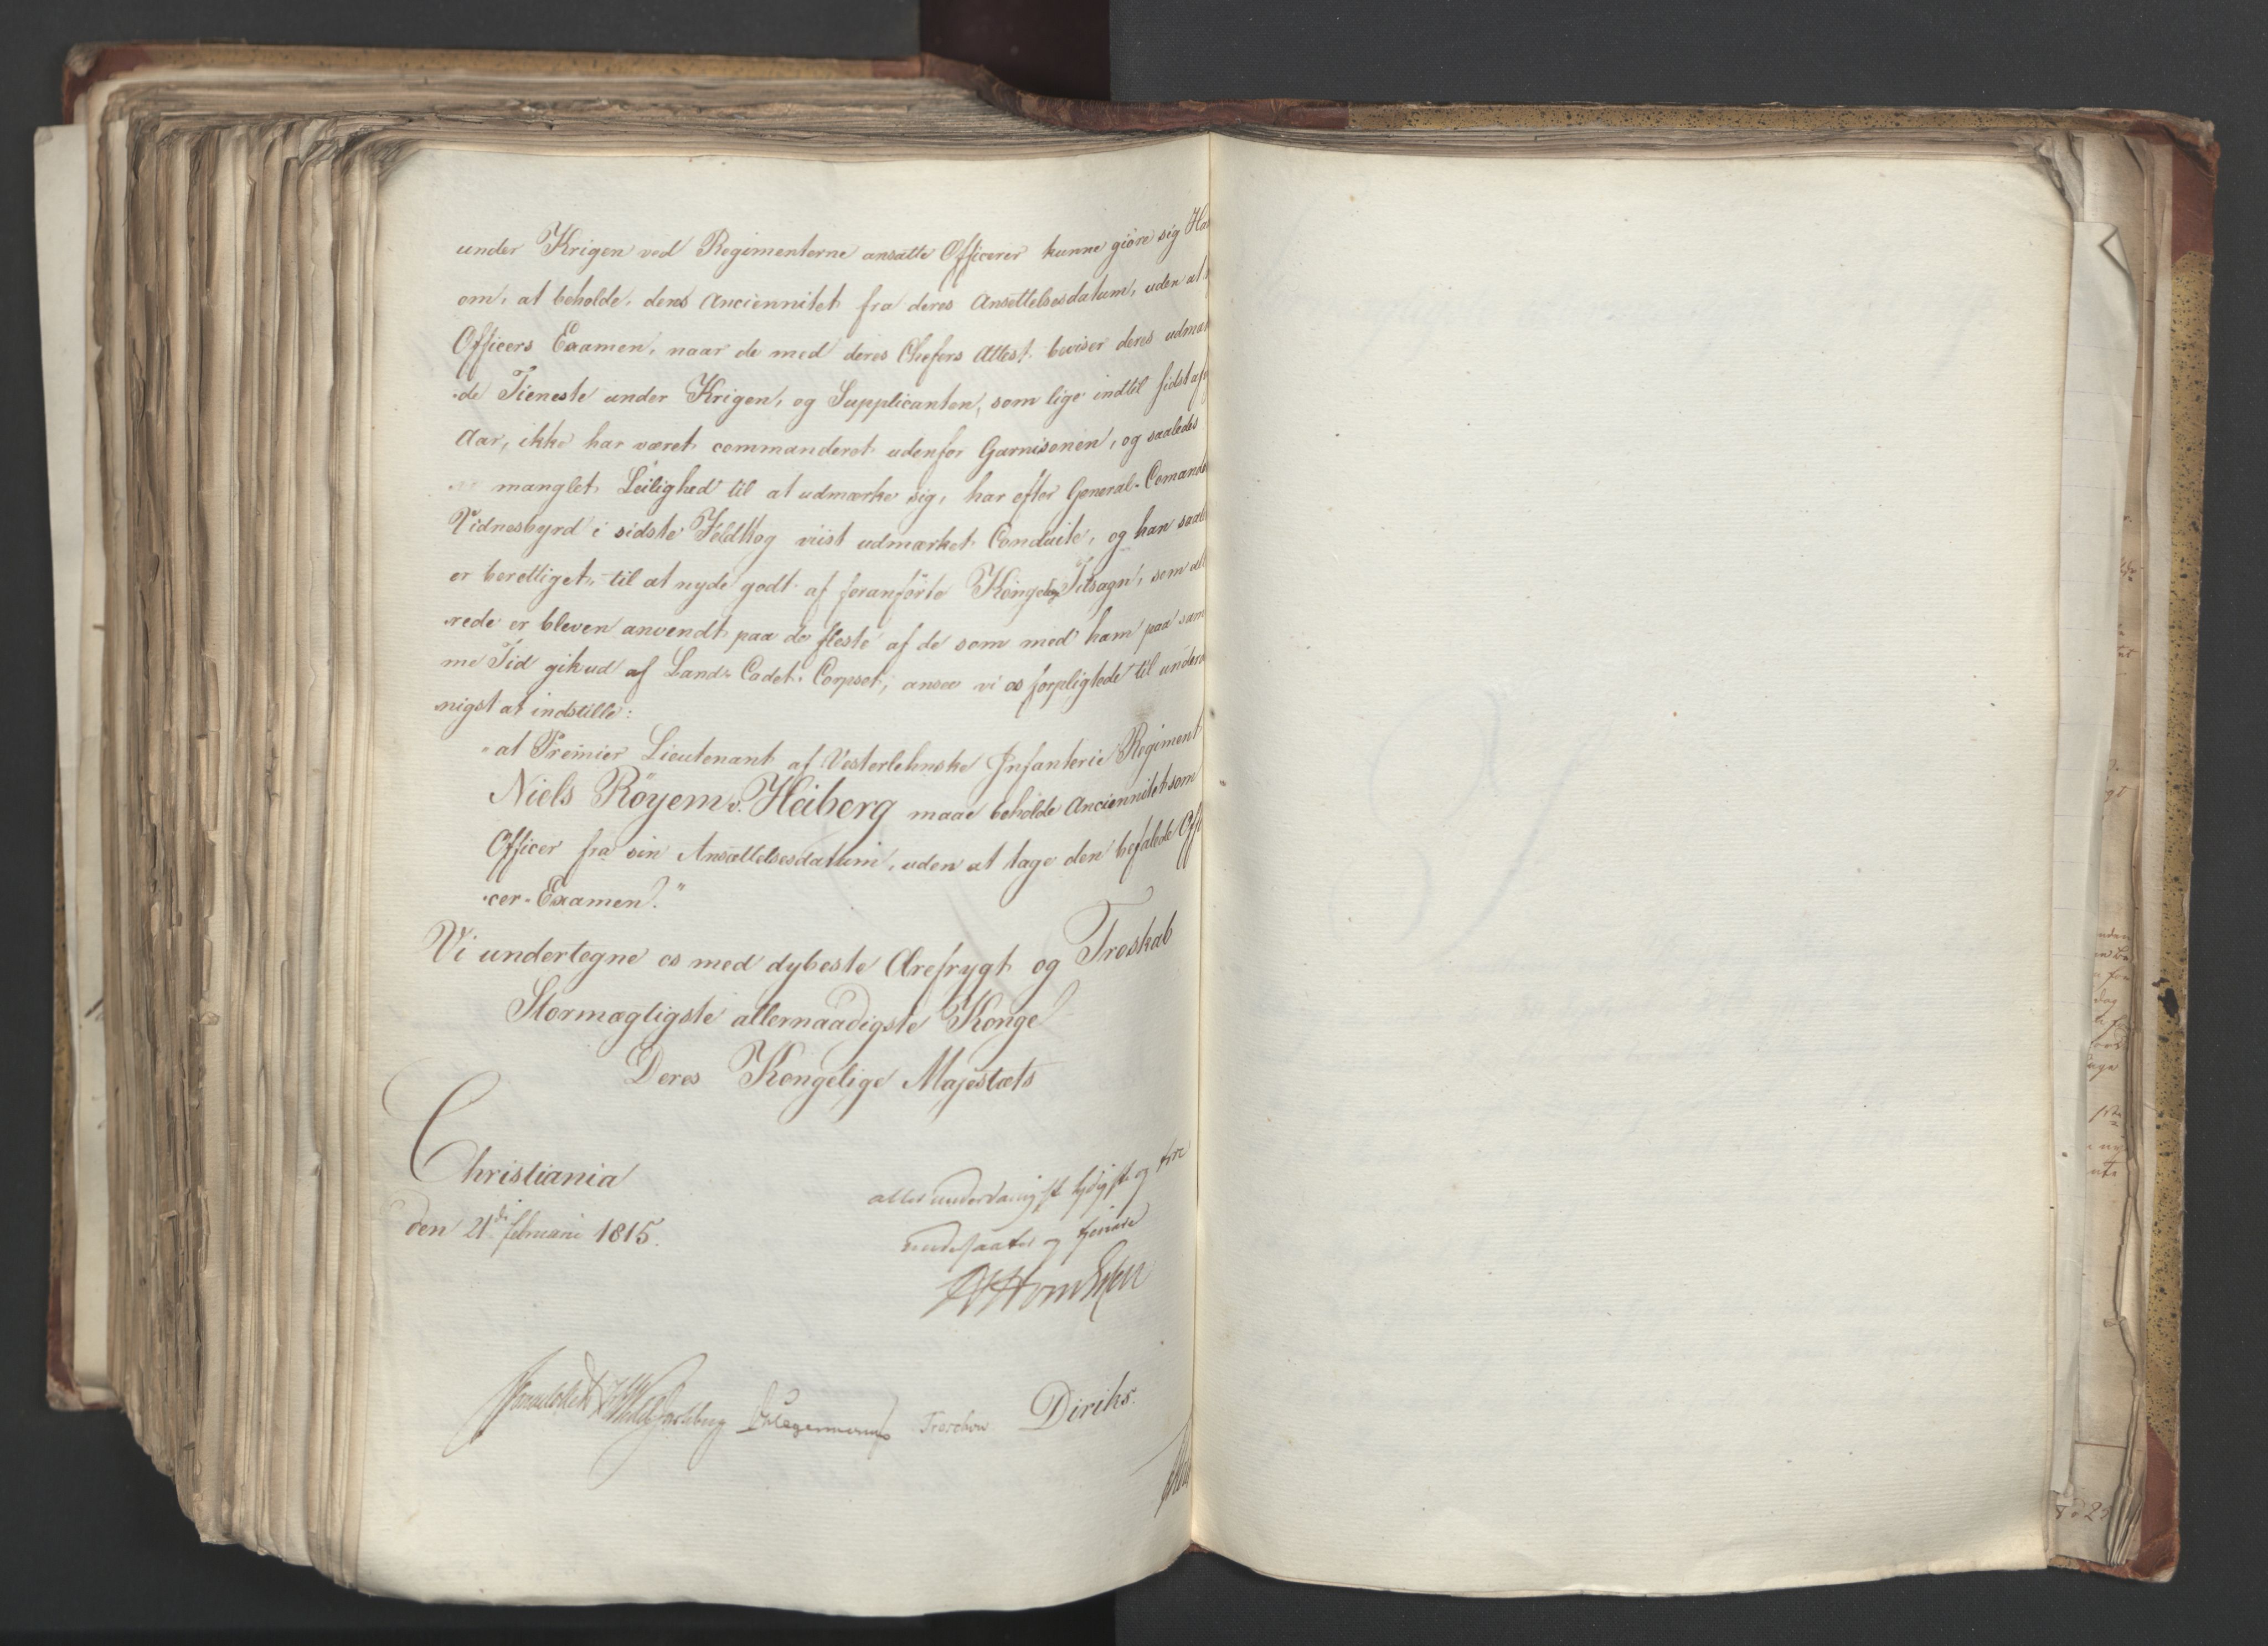 under Krigen ved Regimenterne ansatte Officerer kunne giöre sig Haa
om, at beholde deres Anciennitet fra deres Ansettelsesdatum, uden at
Officers Examen, naar de med deres Chefers Attest beviser deres udmær
de Tieneste under Krigen, og Supplicanten, som lige indtil sidst af
Aar, ikke har været commanderet udenfor Garnisonen, og saaledes
manglet Leilighed til at udmærke sig, har efter General-Comando
Vidnesbyrd i sidste Feldttog viist udmærket Conduite, og han saale
er berettiget til at nyde godt af foranförte Kongelig Tilsagn, som al
rede er bleven anvendt paa de fleste af de som med ham paa sam
me Tid gik ud af Land-Cadet-Corpset; ansee vi os forpligtede til underd
nigst at indstille:
"at Premier Lieutenant af Vesterlehnske Infanterie Regiment
Niels Röyem v. Heiberg maae beholde Anciennitet som
Officer fra sin Ansættelsesdatum, uden at tage den befalede Offi
cer-Examen."
Vi undertegne os med dybeste Ærefrygt og Troskab
Stormægtigste allernaadigste Konge!
Deres Kongelige Majestæts
Christiania
den 21de februari 1815.
allerunderdanigste lydigste og troe
undersaatter og tienere
Diriks.
Treschow